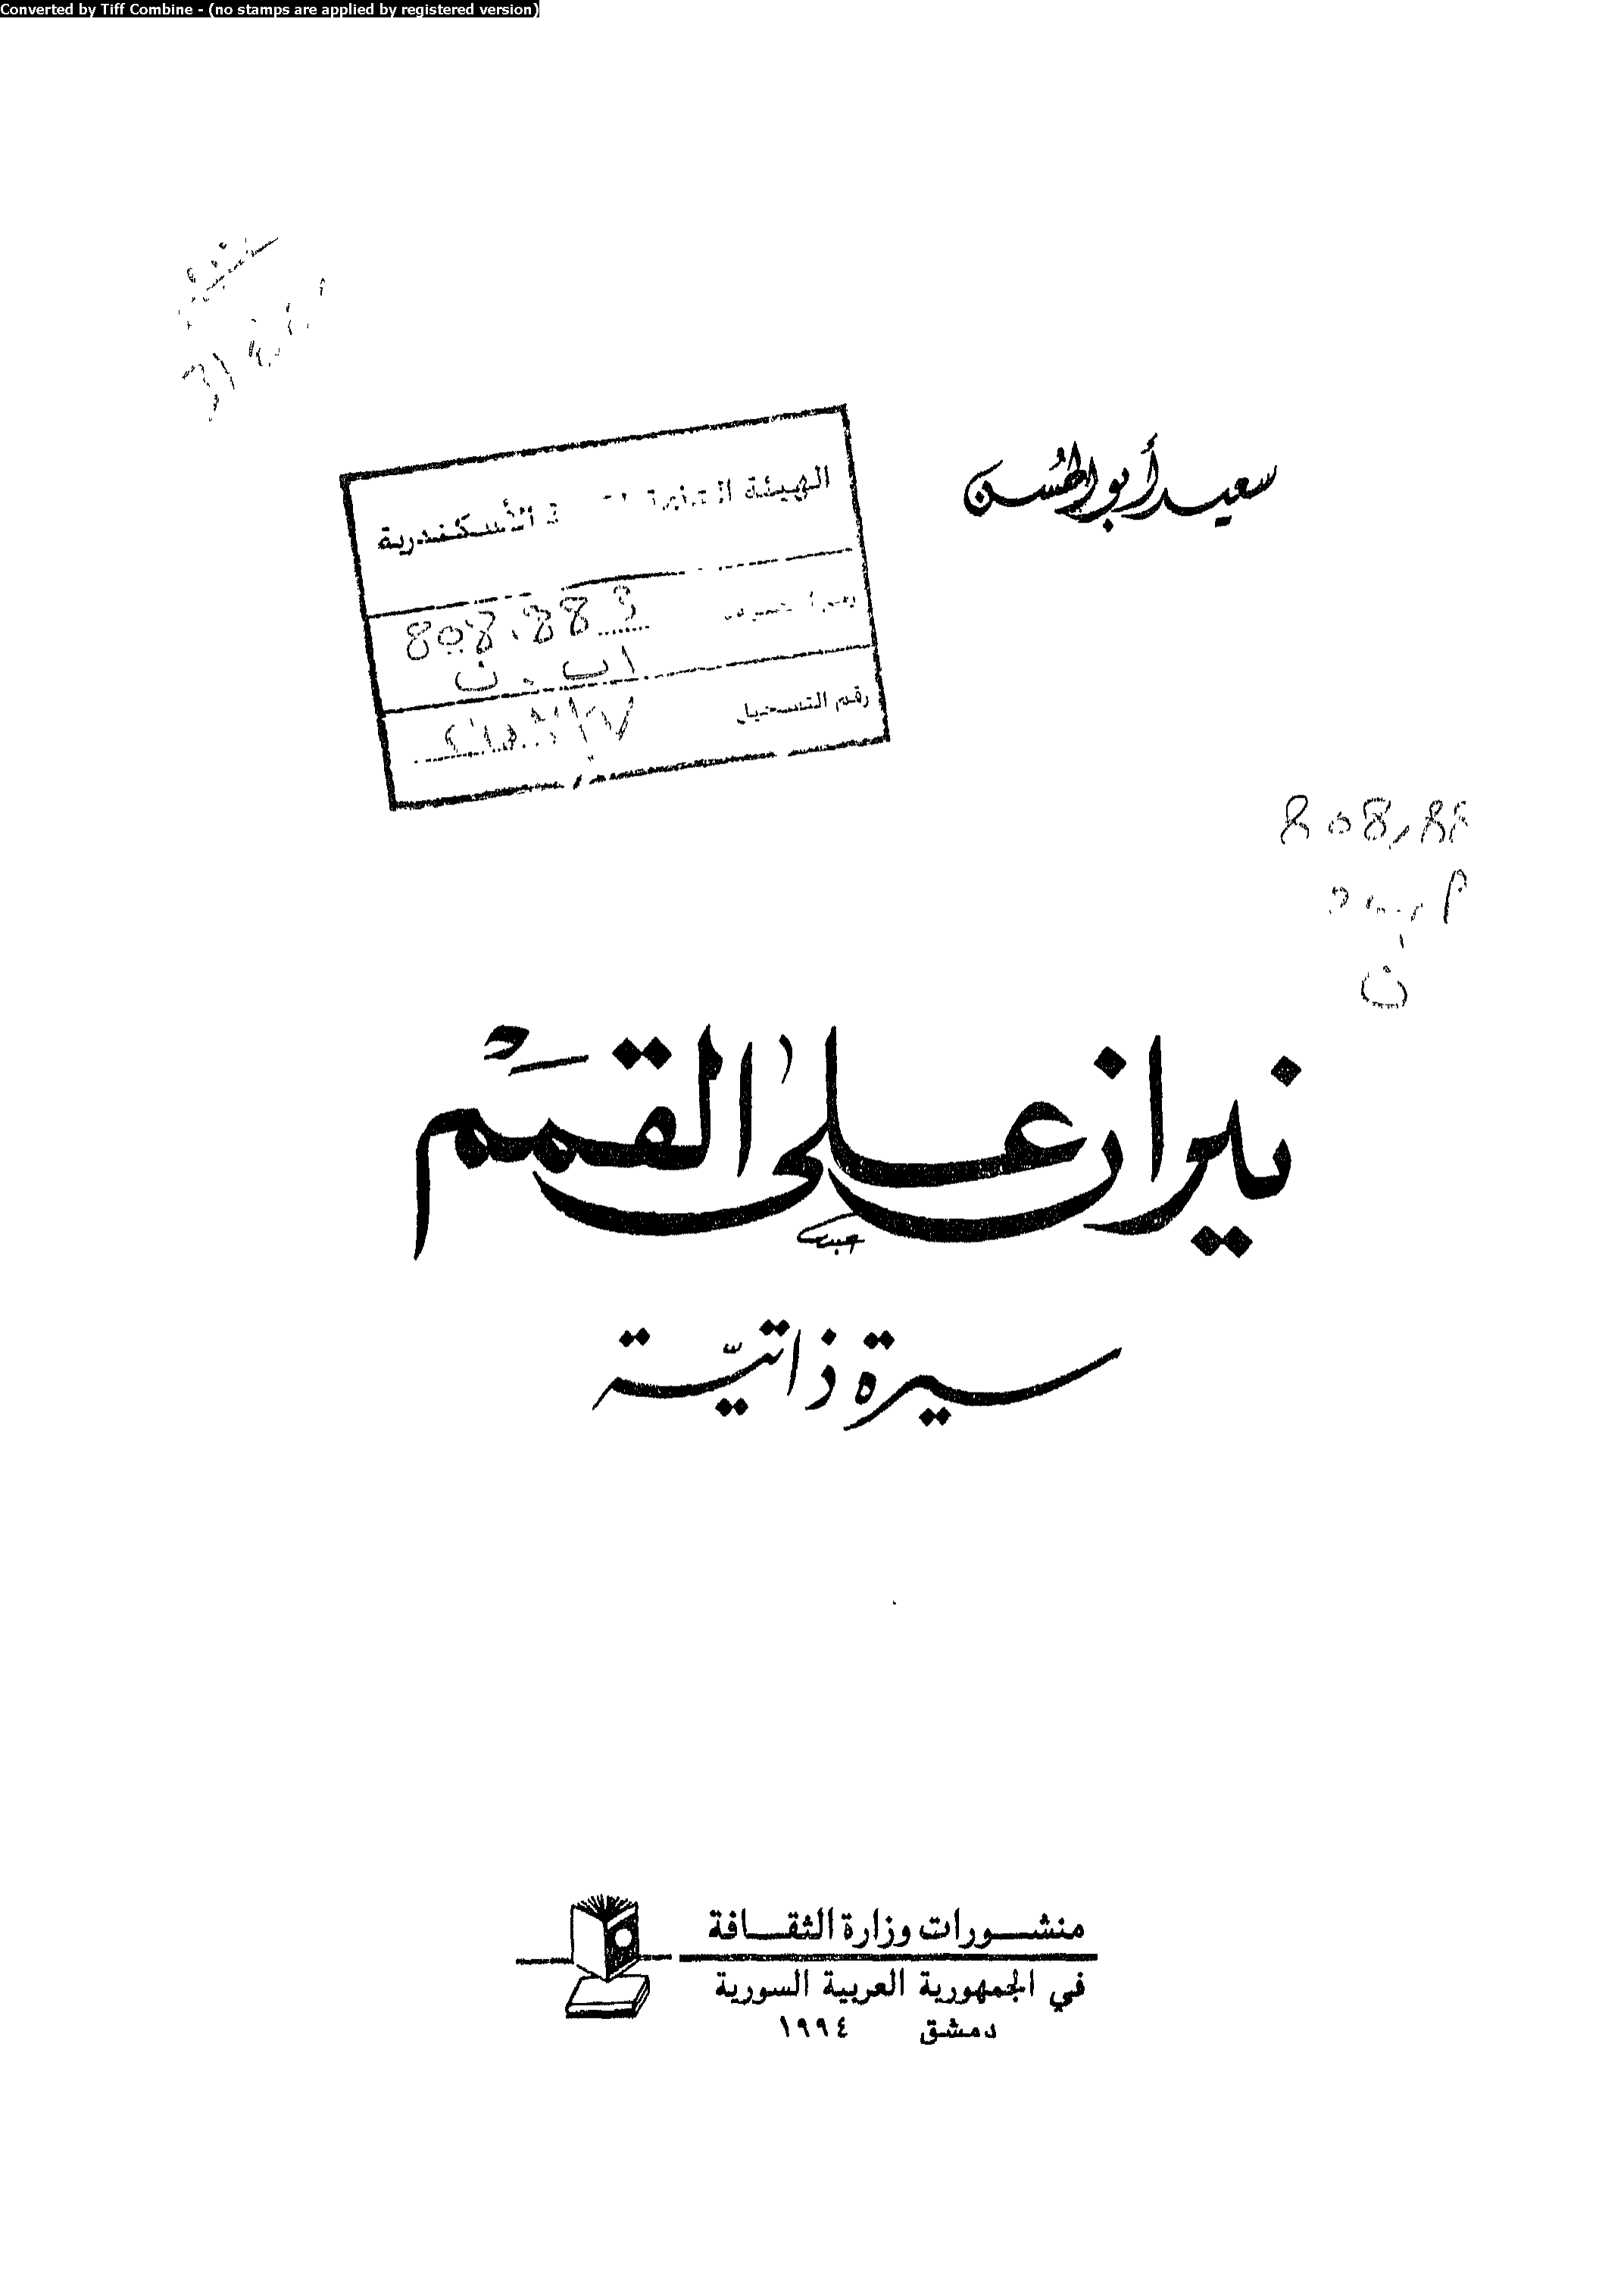 Converted by Tiff Combine - (no stamps are applied by registered version)
سعيد أبو الحسن
الهيئة الأسكندرية
808.883
اب. ن
رقم التسجيل
808,88
ن
نيران على القمم
سيرة ذاتية
منشورات وزارة الثقافة
في الجمهورية العربية السورية
دمشق ١٩٩٤